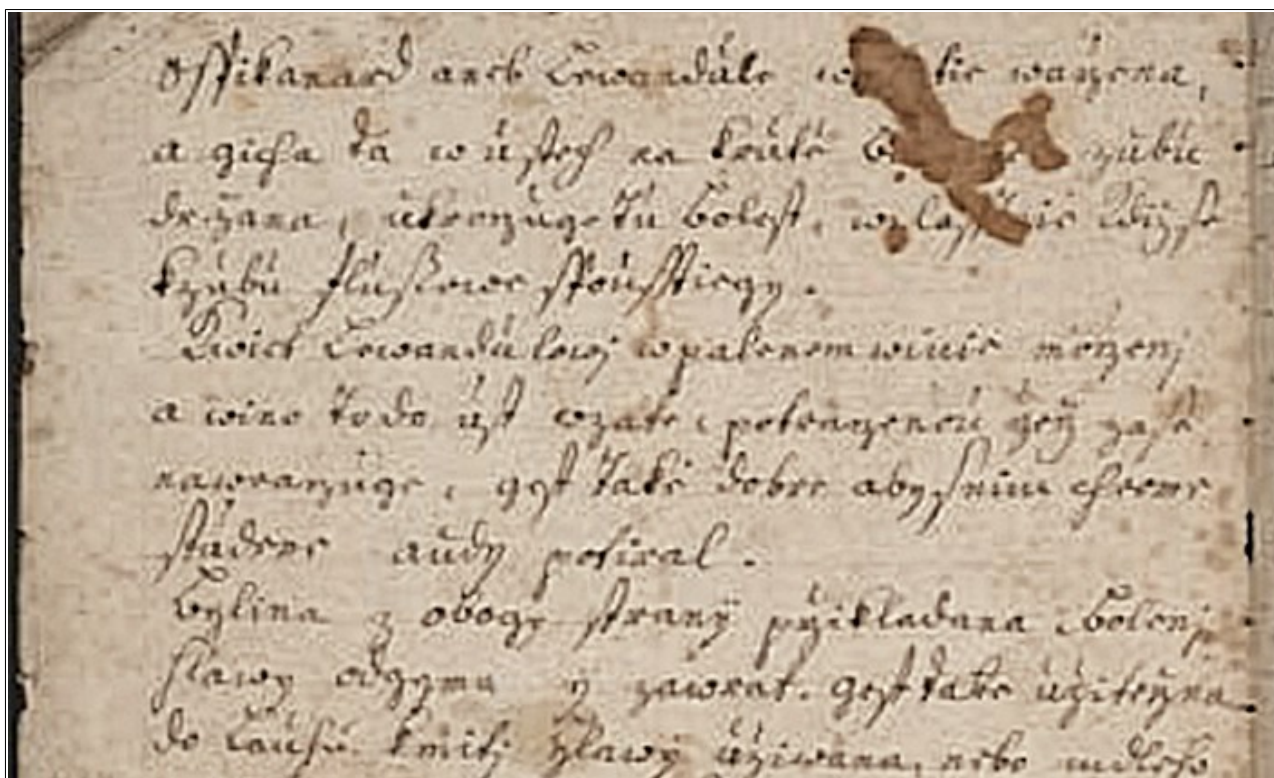 Osspikanard aneb Lewandule w wařena,
a gicha ta w ústech na zubu
držana, ukrocuge tu bolest, wiżsse
k zubu flussowe spousstiegy.
Kwiet Lewandulowy w palenem winie močzeny
a wino to do ust wzate, potraczenou řeč zase
nawraczuge, gest take dobre aby s nim chrome
studene audy potiral.
Bylina z obogy strany přikladana bolenj
hlawy odgyma y zawrat. gest take užiteczna
do Lauhu k mitj hlawy užiwana, nebo